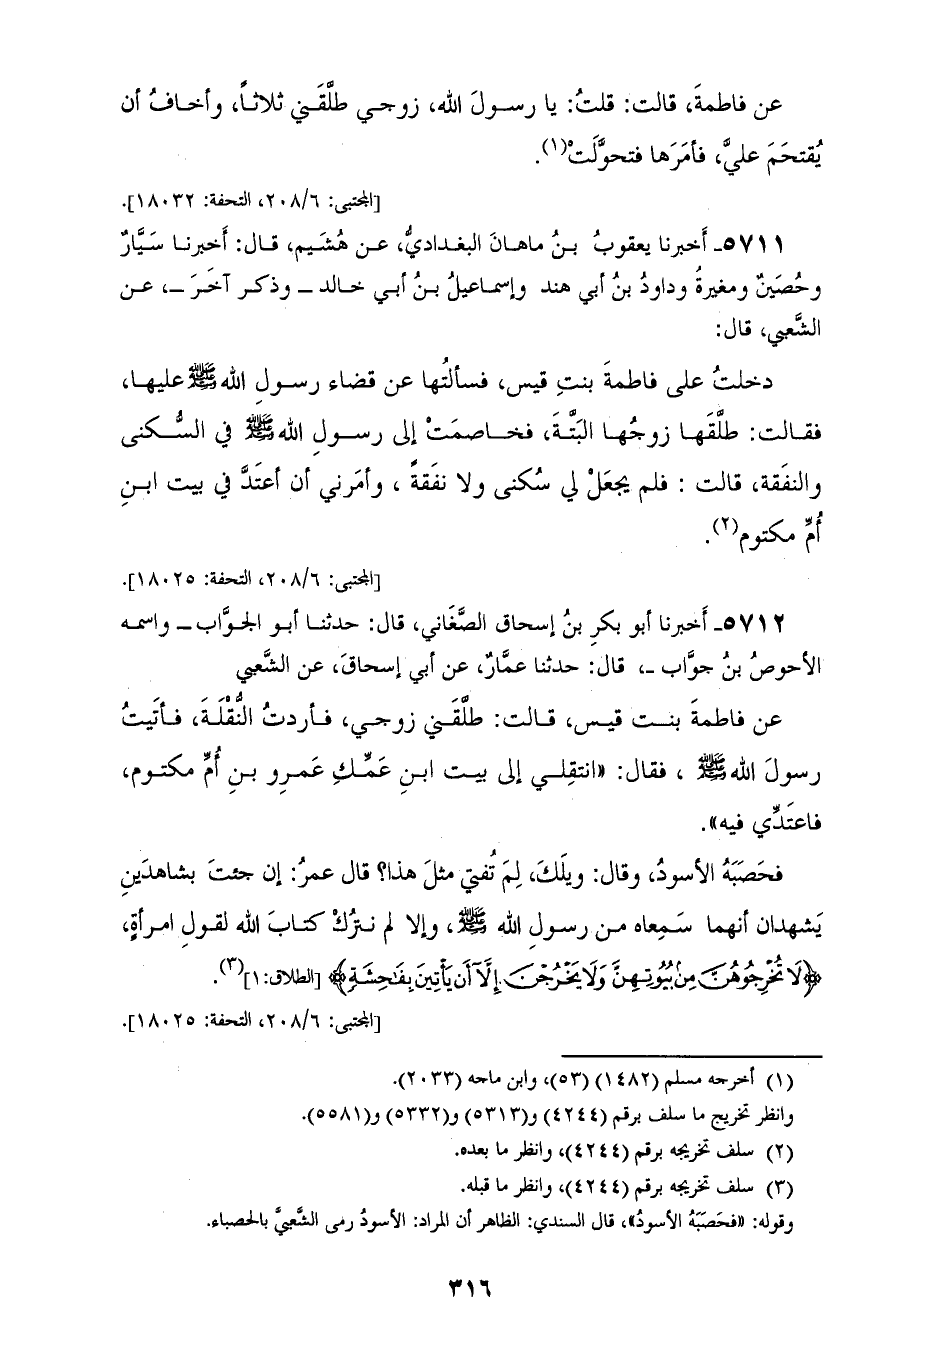 عن فاطمةَ، قالت: قلتُ: يا رسولَ الله، زوجي طلَّقَني ثلاثاً، وأخافُ أن
يُقتحَمَ عليَّ، فأمَرَها فتحوَّلَتْ(١).
[المجتبى: ٢٠٨/٦، التحفة: ١٨٠٣٢].
٥٧١١ـ أَخبرنا يعقوبُ بنُ ماهانَ البغداديُّ، عن هُشَيم، قال: أَخبرنا سَيَّارٌ
وحُصَينٌ ومغيرةُ وداودُ بنُ أبي هند وإسماعيلُ بنُ أبي خالد ـ وذكر آخَرَ ـ، عن
الشَّعبي، قال:
دخلتُ على فاطمةَ بنتِ قيس، فسألتُها عن قضاء رسولِ الله ﷺ عليها،
فقالت: طلَّقَها زوجُها البَتَّةَ، فخاصمَتْ إلى رسولِ الله ﷺ في السُّكنى
والنفَقة، قالت : فلم يجعَلْ لي سُكنى ولا نفَقةً ، وأمَرني أن أعتَدَّ في بيت ابنِ
أُمِّ مكتوم(٢).
[المجتبى: ٢٠٨/٦، التحفة: ١٨٠٢٥].
٥٧١٢ـ أَخبرنا أبو بكرِ بنُ إسحاق الصَّغَاني، قال: حدثنا أبو الجوَّاب ـ واسمه
الأحوصُ بنُ جوَّاب ـ، قال: حدثنا عمَّارٌ، عن أبي إسحاقَ، عن الشَّعبي
عن فاطمةَ بنت قيس، قالت: طلَّقَني زوجي، فأردتُ النُّقْلَةَ، فأتَيتُ
رسولَ الله ﷺ ، فقال: «انتقِلي إلى بيت ابنِ عَمِّكِ عَمرِو بنِ أُمِّ مكتوم،
فاعتَدِّي فيه».
فحَصَبَهُ الأسودُ، وقال: ويلَكَ، لِمَ تُفتي مثلَ هذا؟ قال عمرُ: إن جئتَ بشاهدَينِ
يَشهدان أنهما سَمِعاه من رسولِ الله ﷺ، وإلا لم نترُكْ كتابَ الله لقولِ امرأةٍ،
﴿لَا تُخْرِجُوهُنَّ مِنۢ بُيُوتِهِنَّ وَلَا يَخْرُجْنَ إِلَّآ أَن يَأْتِينَ بِفَٰحِشَةٍ﴾ [الطلاق: ١](٣).
[المجتبى: ٢٠٨/٦، التحفة: ١٨٠٢٥].
(١) أخرجه مسلم (١٤٨٢) (٥٣)، وابن ماجه (٢٠٣٣).
وانظر تخريج ما سلف برقم (٤٢٤٤) و(٥٣١٣) و(٥٣٣٢) و(٥٥٨١).
(٢) سلف تخريجه برقم (٤٢٤٤)، وانظر ما بعده.
(٣) سلف تخريجه برقم (٤٢٤٤)، وانظر ما قبله.
وقوله: «فحَصَبَهُ الأسودُ»، قال السندي: الظاهر أن المراد: الأسودُ رمى الشَّعبيَّ بالحصباء.
٣١٦